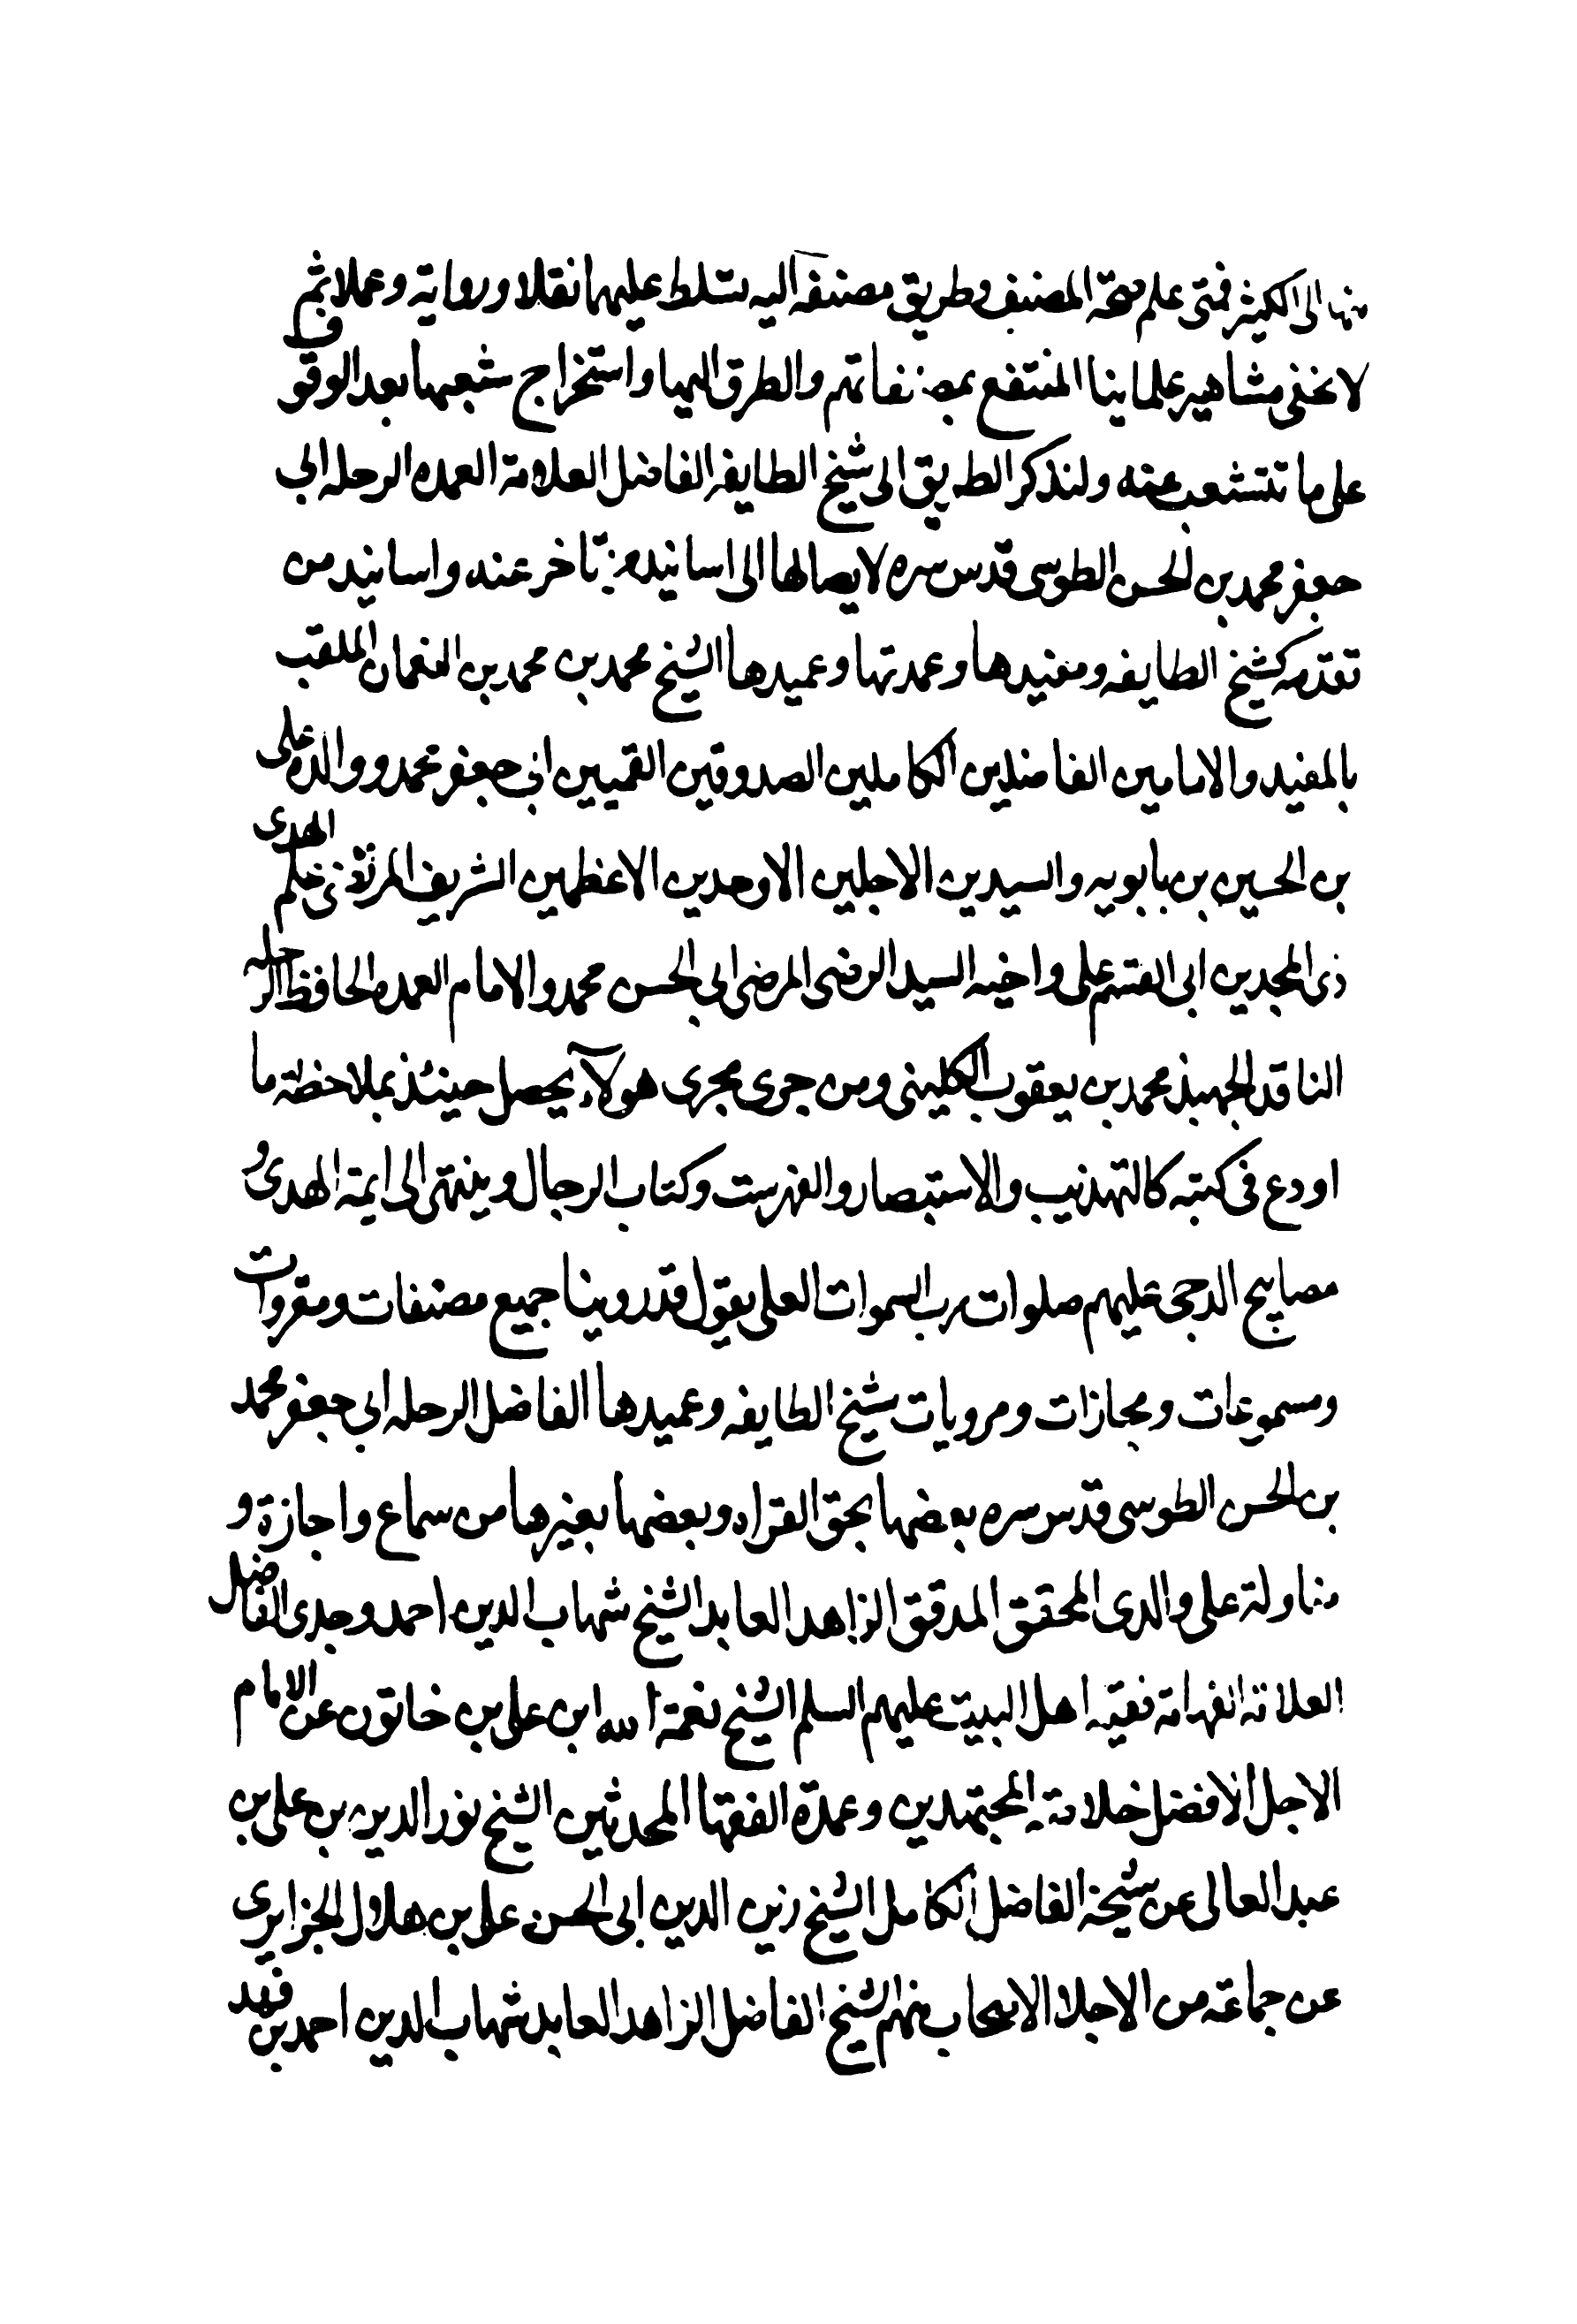 منها الى الكثير فمتى علم صحة المصنف وطريق مصنفه اليه تسلط عليهما نقلا ورواية وعملا ثم
لا تخفى مشاهير علماينا المنتفع بمصنفاتهم والطرق اليها واستخراج شعبها بعد الوقوف
على ما تتشعب عنه ولنذكر الطريق الى شيخ الطايفه الفاضل العلامة العمده الرحله ابي
جعفر محمد بن الحسن الطوسى قدس سره لايصالها الى اسانيد من تاخر عنه واسانيد من
تقدمه كشيخ الطايفه ومفيدها وعمدتها وعميدها الشيخ محمد بن محمد بن النعمان الملقب
بالمفيد والامامين الفاضلين الكاملين الصدوقين القميين ابي جعفر محمد ووالده على
بن الحسين بن بابويه والسيدين الاجلين الاوحدين الاعظمين الشريف المرتضى علم الهدى
ذى المجدين ابى القسم على واخيه السيد الرضى المرضى ابى الحسن محمد والامام العمده الحافظ الرحله
الناقد الجهبذ محمد بن يعقوب الكلينى ومن جرى مجرى هولآء يحصل حينئذ بملاحظة ما
اودع فى كتبه كالتهذيب والاستبصار والفهرست وكتاب الرجال وينتهى الى ايمة الهدى و
مصابيح الدجى عليهم صلوات رب السموات العلى يقول قد روينا جميع مصنفات ومقروات
ومسموعات ومجازات ومرويات شيخ الطايفه وعميدها الفاضل الرحله ابي جعفر محمد
بن الحسن الطوسى قدس سره بعضها بحق القراه وبعضها بغيرها من سماع واجازة و
مناولة على والدى المحقق المدقق الزاهد العابد الشيخ شهاب الدين احمد وجدى الفاضل
العلامة الفهامة فقيه اهل البيت عليهم السلم الشيخ نعمة الله ابن على بن خاتون عن الامام
الاجل الافضل خلاصة المجتهدين وعمدة الفقها المحدثين الشيخ نور الدين بن على بن
عبد العالى عن شيخه الفاضل الكامل الشيخ زين الدين ابى الحسن على بن هلال الجزايرى
عن جماعة من الاجلا الاصحاب منهم الشيخ الفاضل الزاهد العابد شهاب الدين احمد بن فهد